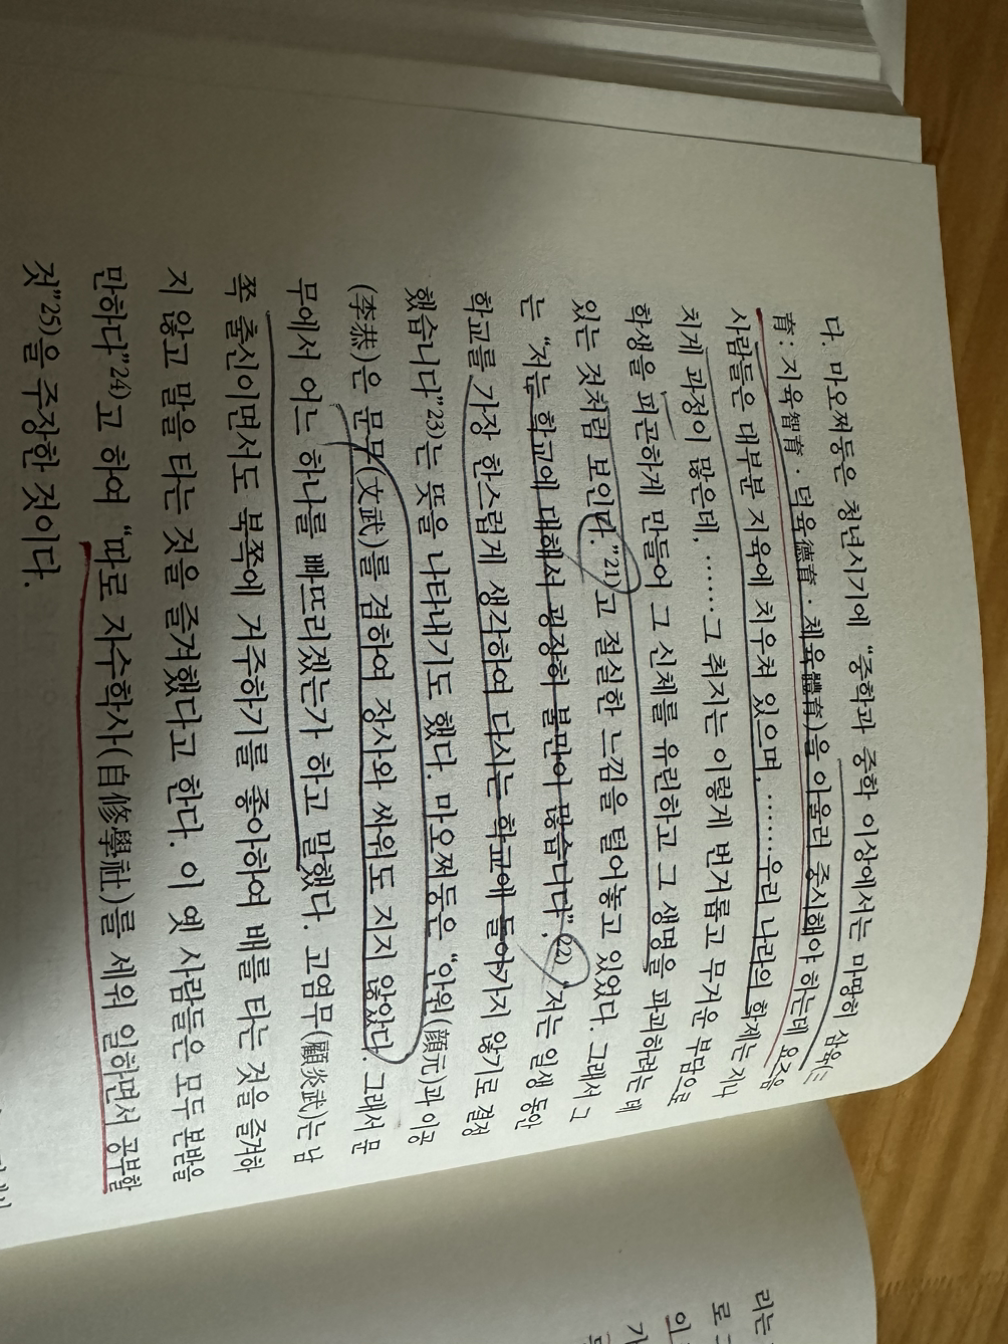 다. 마오쩌둥은 청년시기에 “중학과 중학 이상에서는 마땅히 삼육(三
育: 지육智育·덕육德育·체육體育)을 아울러 중시해야 하는데 요즈음
사람들은 대부분 지육에 치우쳐 있으며, ……우리 나라의 학제는 지나
치게 과정이 많은데, ……그 취지는 이렇게 번거롭고 무거운 부담으로
학생을 피곤하게 만들어 그 신체를 유린하고 그 생명을 파괴하려는 데
있는 것처럼 보인다.”21)고 절실한 느낌을 털어놓고 있었다. 그래서 그
는 “저는 학교에 대해서 굉장히 불만이 많습니다”,22) “저는 일생 동안
학교를 가장 한스럽게 생각하여 다시는 학교에 돌아가지 않기로 결정
했습니다”23)는 뜻을 나타내기도 했다. 마오쩌둥은 “안원(顔元)과 이공
(李恭)은 문무(文武)를 겸하여 장사와 싸워도 지지 않았다. 그래서 문
무에서 어느 하나를 빠뜨리겠는가 하고 말했다. 고염무(顧炎武)는 남
쪽 출신이면서도 북쪽에 거주하기를 좋아하여 배를 타는 것을 즐겨하
지 않고 말을 타는 것을 즐겨했다고 한다. 이 옛 사람들은 모두 본받을
만하다”24)고 하여 “따로 자수학사(自修學社)를 세워 일하면서 공부할
것”25)을 주장한 것이다.
리는
로
인
가